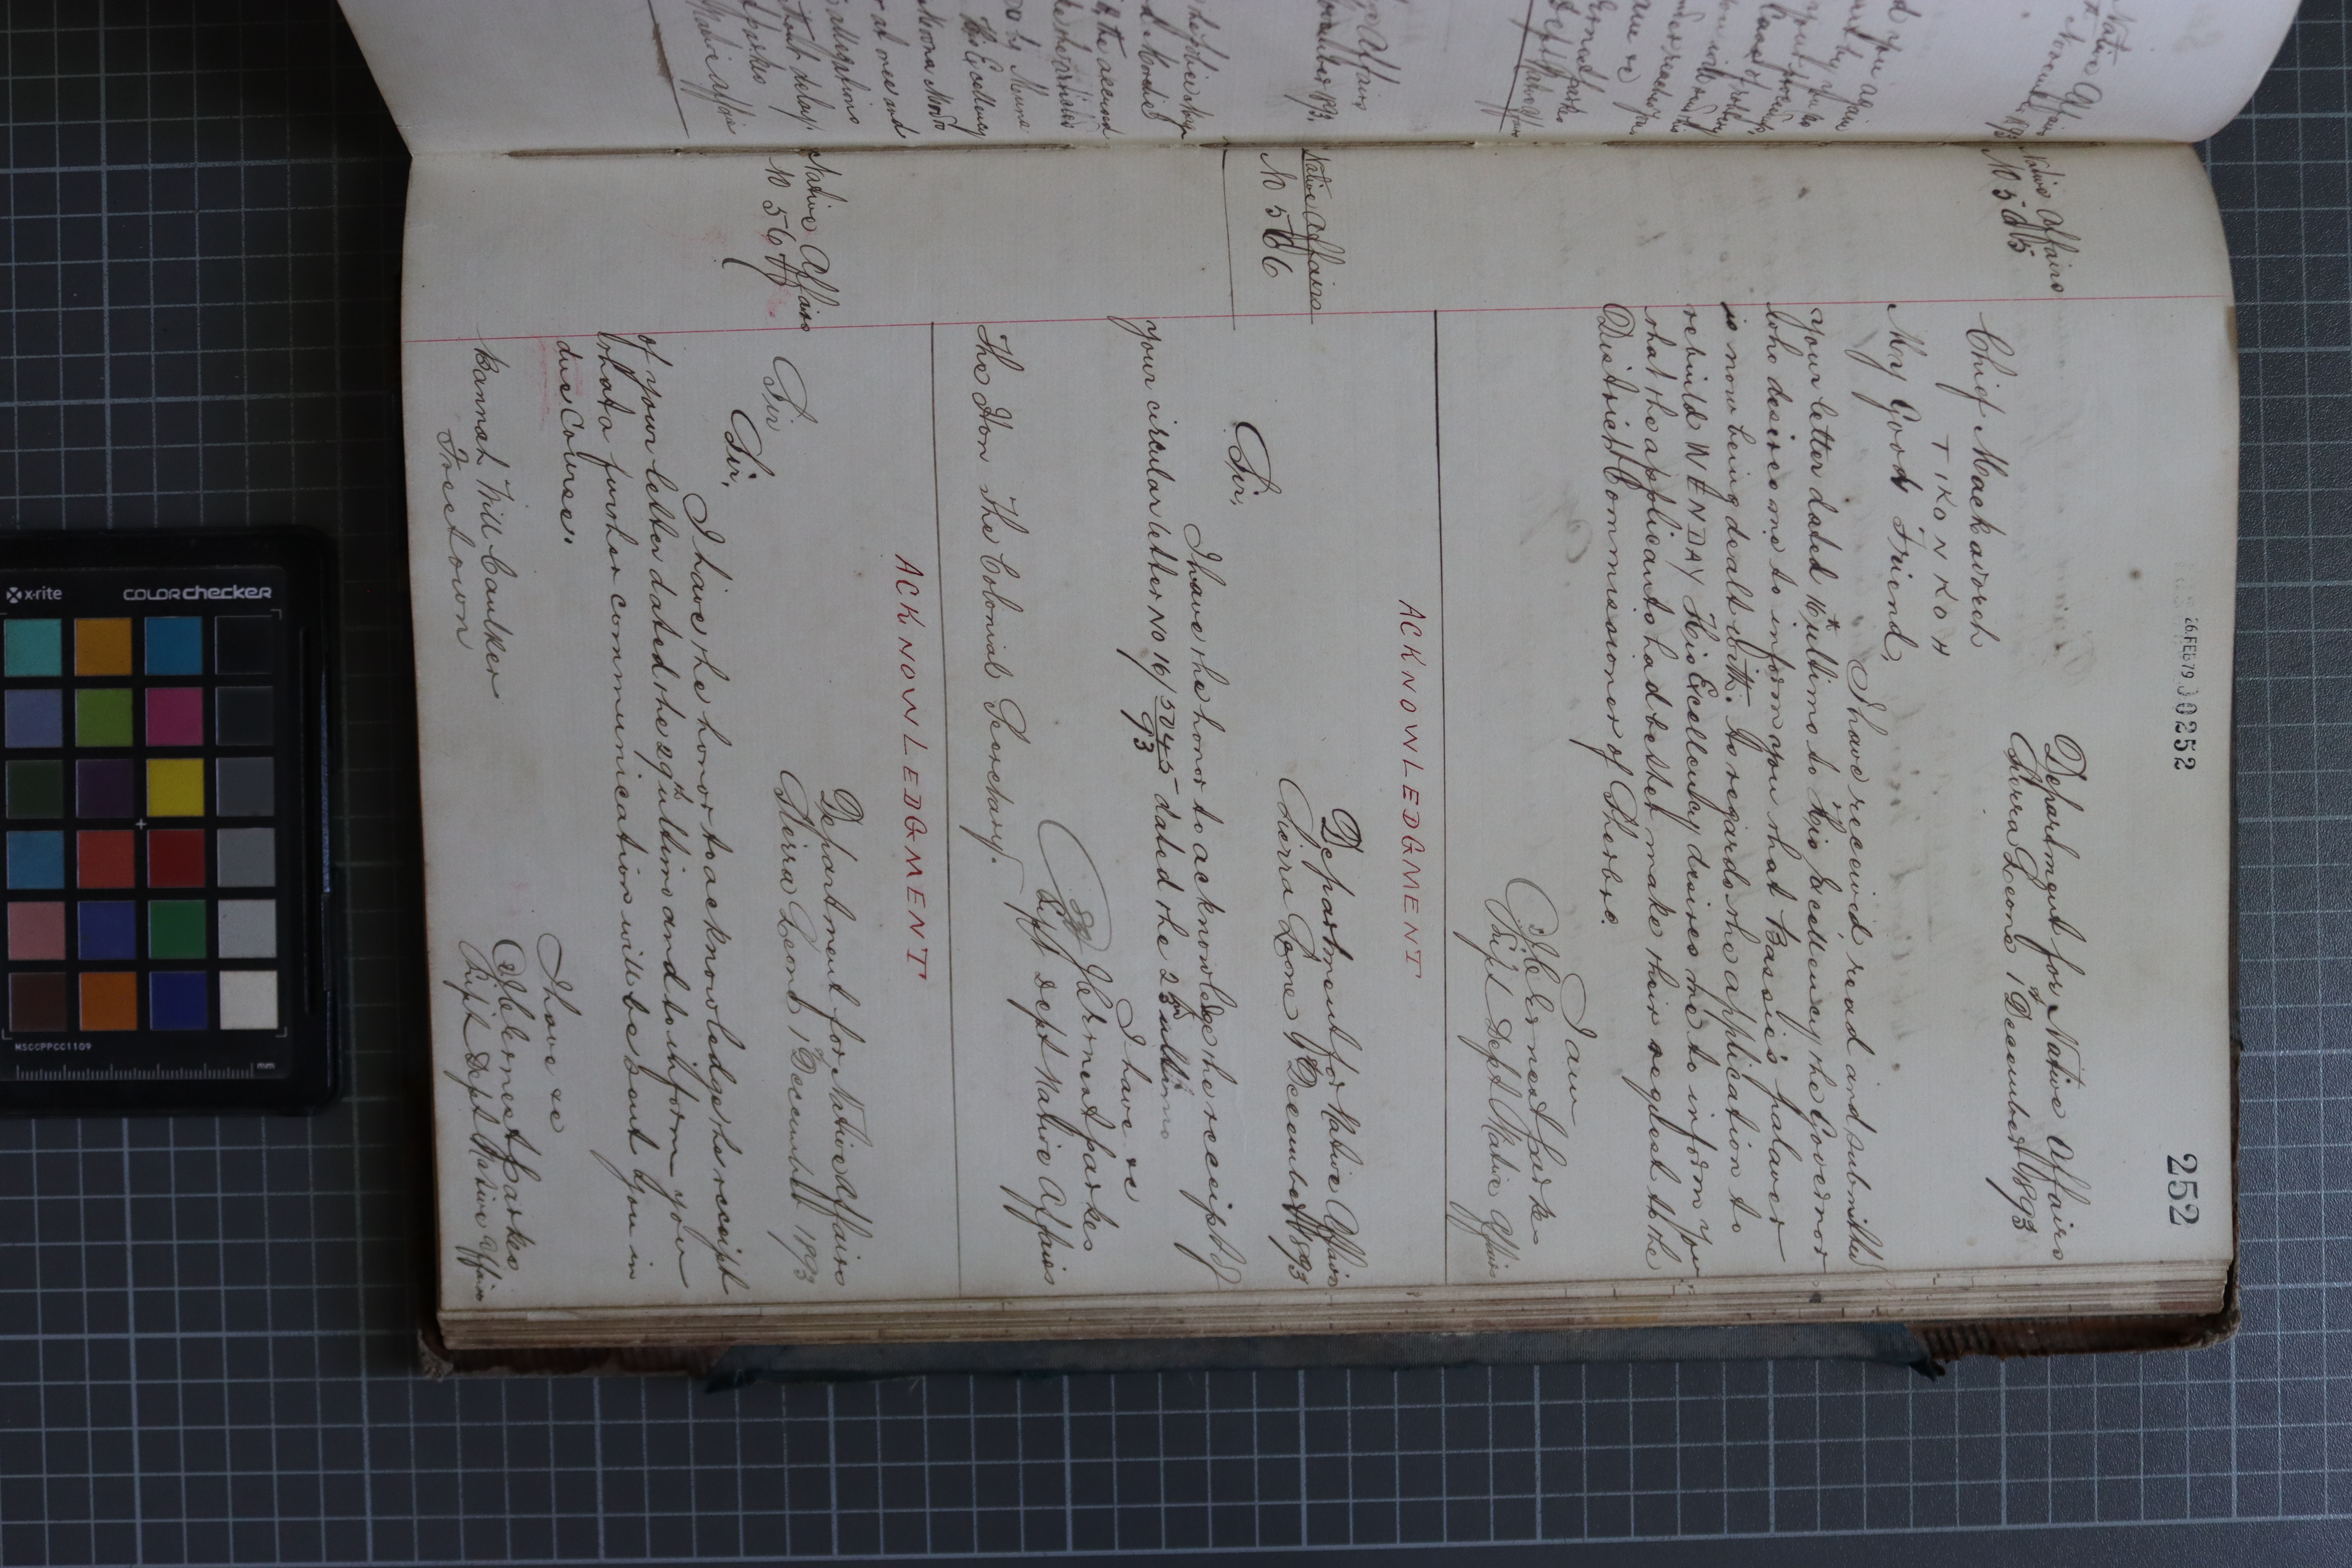 26.FEB79 00252
252
Native Affairs
No 565
Department for Native Affairs
Sierra Leone 1st December 1893
Chief Mackavoreh
TIKONKOH
My Good Friend,
I have received, read and submitted
your letter dated 16th ultimo to His Excellency the Governor
who desires me to inform you that Bassie's palaver
is now being dealt with. As regards the application to
rebuild WENDAY His Excellency desires me to inform you
that the applicants had better make their request to the
District Commissioner of Sherbro.
I am
J C Ernest Parkes
Supt Dept Native Affairs
ACKNOWLEDGMENT
Native Affairs
No 566
Department for Native Affairs
Sierra Leone 1st December 1893
Sir,
I have the honor to acknowledge the receipt of
your circular letter No 16/5045/93 dated the 25th ultimo
I have &c
Sgd J C Ernest Parkes
Supt Dept Native Affairs
The Hon The Colonial Secretary.
ACKNOWLEDGMENT
Native Affairs
No 567
Department for Native Affairs
Sierra Leone 1st December 1893
Sir
Sir,
I have the honor to acknowledge the receipt
of your letter dated the 29th ultimo and to inform you
that a further communication will be sent you in
due Course.
I have &c
J C Ernest Parkes
Supt Dept Native Affairs
Bannah Will Caulker
Freetown
x-rite
COLORchecker
MSCCPPCC1109
mm